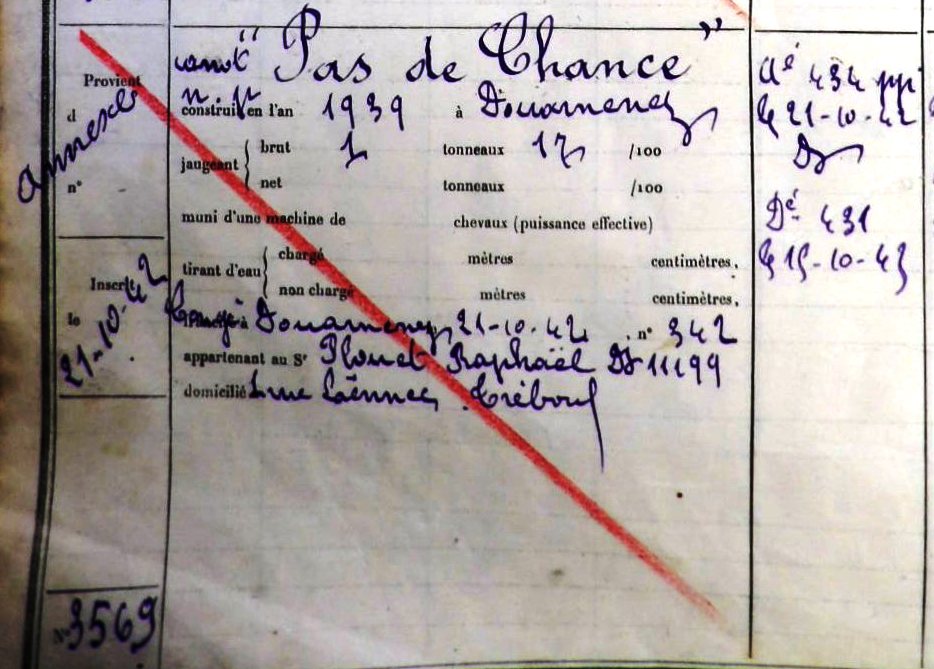 Provient
d
annexes
n°
Inscrit
le
21-10-42
N° 3569
canot "Pas de Chance"
n. p.
construit en l'an 1939 à Douarnenez
jaugeant { brut 1 tonneaux 17 /100
net tonneaux /100
muni d'une machine de chevaux (puissance effective)
tirant d'eau { chargé mètres centimètres.
non chargé mètres centimètres.
à Douarnenez 21-10-42 n° 342
appartenant au Sr Plouet Raphaël Dz 11199
domicilié 1 rue Laënnec Tréboul
Aé 434 ppi
le 21-10-42
Dz
Dé 431
le 15-10-43